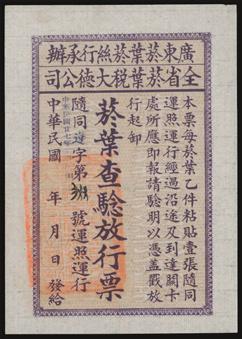 廣東菸葉菸絲行承辦
全省菸葉菸稅大德公司
本票每菸葉乙件粘貼壹張隨同
運照運行經過沿途及到達關卡
處所應即報請驗明以憑蓋戳放
行起卸
菸葉查驗放行票
隨同 字第 號運照運行
中華民國 年 月 日發給